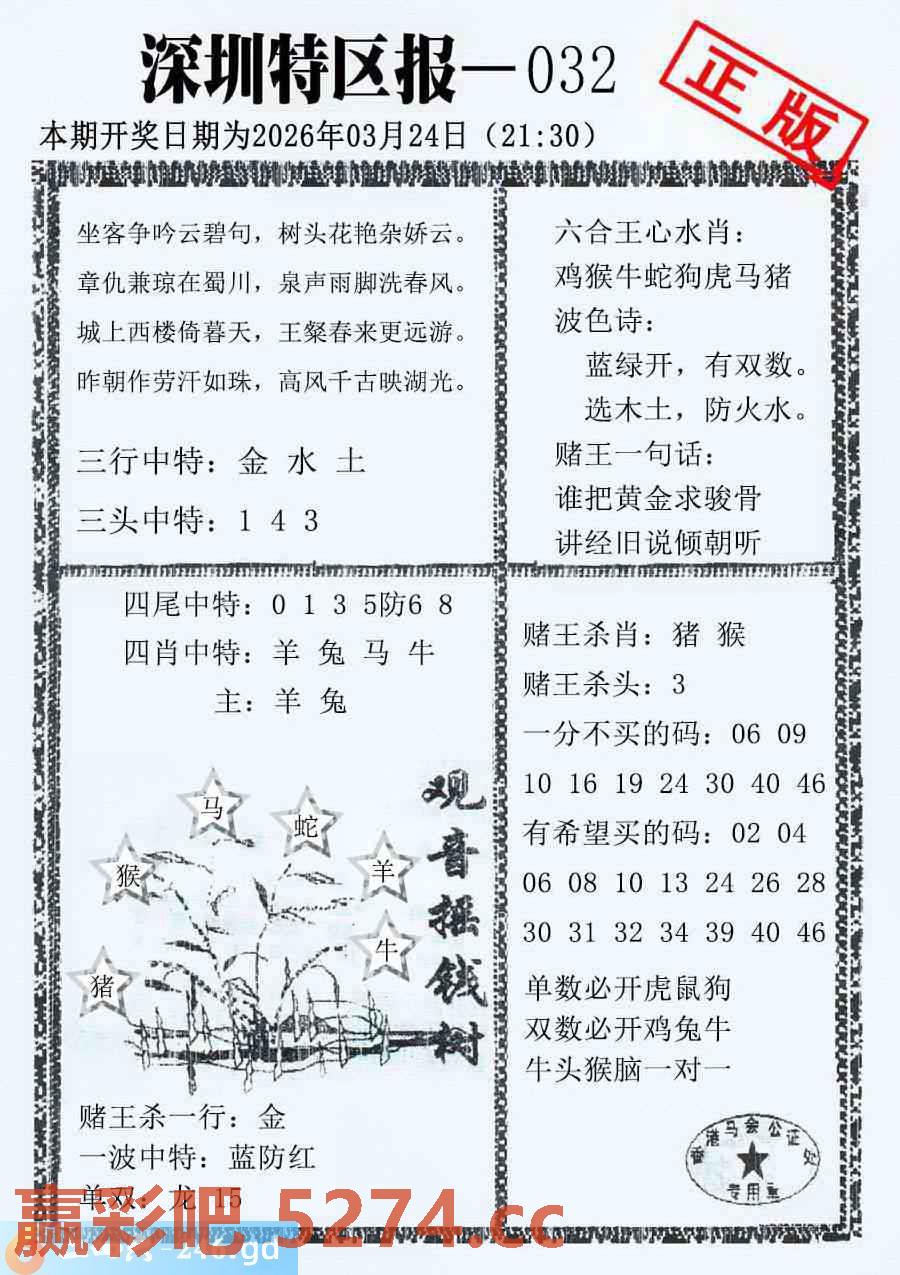 深圳特区报—032
正版
本期开奖日期为2026年03月24日（21:30）
坐客争吟云碧句，树头花艳杂娇云。
章仇兼琼在蜀川，泉声雨脚洗春风。
城上西楼倚暮天，王粲春来更远游。
昨朝作劳汗如珠，高风千古映湖光。
三行中特：金 水 土
三头中特：1 4 3
六合王心水肖：
鸡猴牛蛇狗虎马猪
波色诗：
蓝绿开，有双数。
选木土，防火水。
赌王一句话：
谁把黄金求骏骨
讲经旧说倾朝听
四尾中特：0 1 3 5防6 8
四肖中特：羊 兔 马 牛
主：羊 兔
观音摇钱树
马
蛇
猴
羊
牛
猪
赌王杀一行：金
一波中特：蓝防红
单双：龙 15
赌王杀肖：猪 猴
赌王杀头：3
一分不买的码：06 09
10 16 19 24 30 40 46
有希望买的码：02 04
06 08 10 13 24 26 28
30 31 32 34 39 40 46
单数必开虎鼠狗
双数必开鸡兔牛
牛头猴脑一对一
香港马会公证处
专用章
赢彩吧 5274.cc